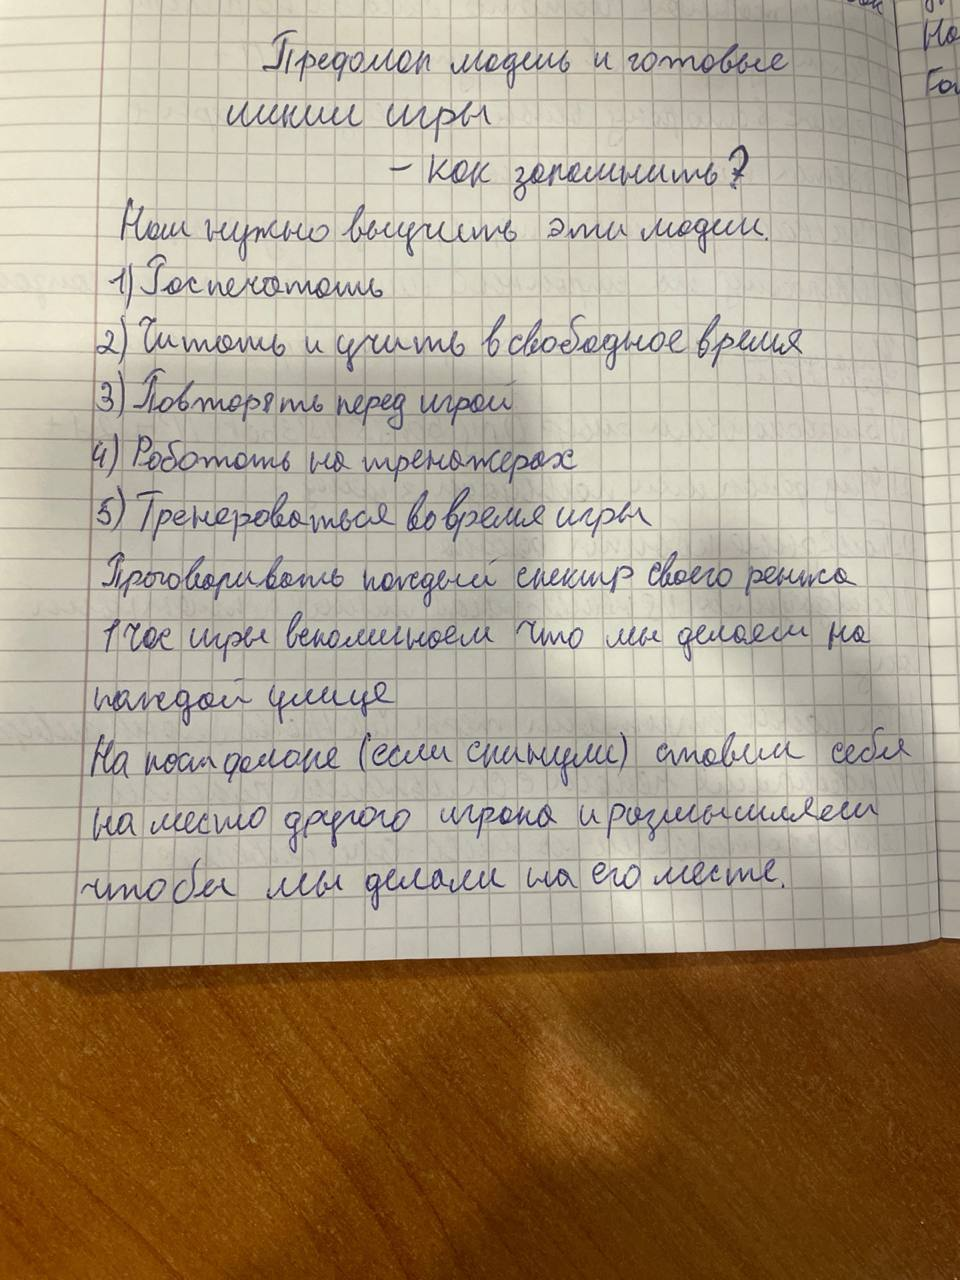 Предолоп модель и готовые
линии игры
- как запомнить?
Нам нужно выучить эти модели.
1) Распечатать
2) Читать и учить в свободное время
3) Повторять перед игрой
4) Работать на тренажерах
5) Тренероваться во время игры
Проговаривать каждый спектр своего ренжа
1 час игры вспоминаем что мы делаем на
каждой улице
На постфлопе (если скинули) ставим себя
на место другого игрока и размышляем
чтобы мы делали на его месте.
На